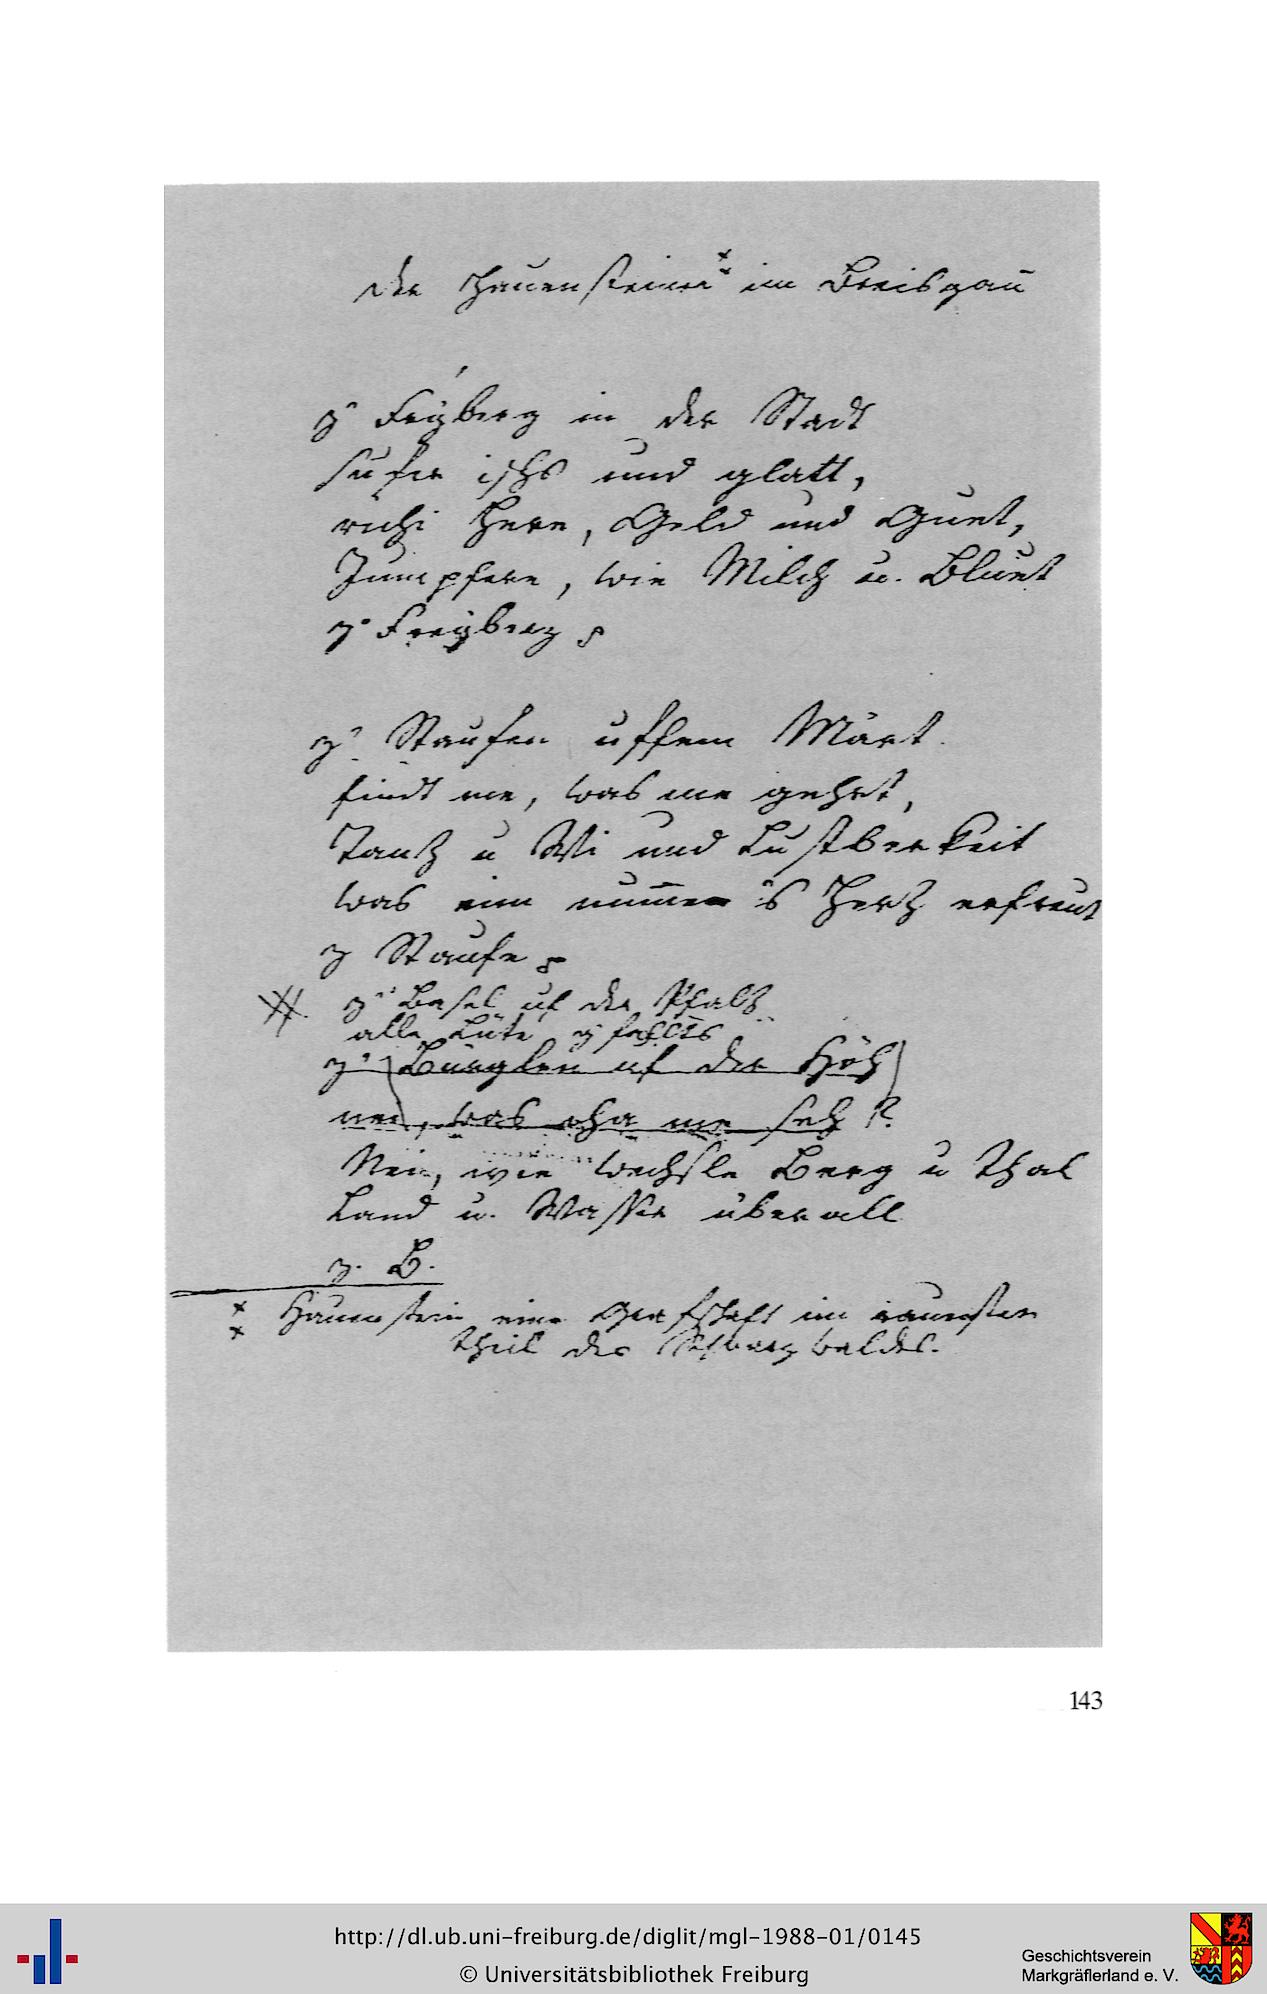 Der Hauensteiner ** im Breisgau
z' Freyberg in der Stadt
sufer ischs und glatt,
richi Here, Geld und Guet,
Jumpfere, wie Milch u. Bluet
z' Freyberg
z' Staufen uffem Märt
findt me, was me gehrt,
Tanz u Wi und Lustberkeit
was eim numme 's Herz erfreut
z Staufe
z' Basel uf der Pfalz
alle Lüte gfallts
z' Bürglen uf der Höh
nei, was cha me seh?
Nei, wie wechsle Berg u Thal
Land u. Wasser überall
z. B.
** Hauenstein eine Grafschaft im
Theil des Schwarzwaldes.
143
http://dl.ub.uni-freiburg.de/diglit/mgl-1988-01/0145
© Universitätsbibliothek Freiburg
Geschichtsverein
Markgräflerland e. V.